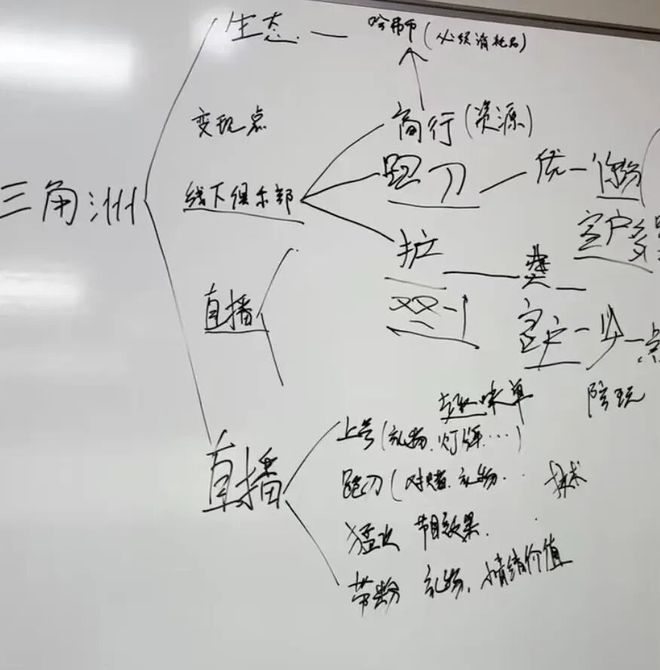 三角洲
生态 — 哈弗币（必须消耗品）
变现点
线下俱乐部
商行（资源）
跑刀 — 优一
客户多
护 — 粪
双一
客户一少一点
直播
直播
趣味单 陪玩
上号（礼物、灯牌…）
跑刀（对赌、礼物…
猛攻 节目效果.
带粉 礼物、情绪价值